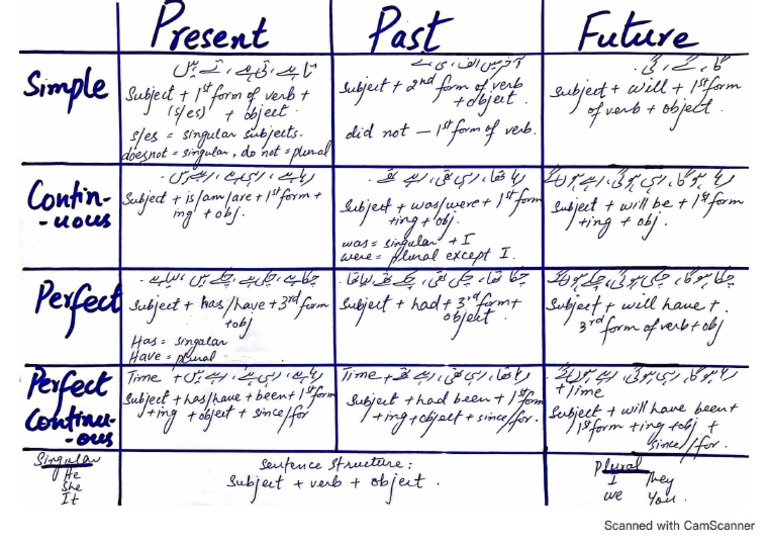 Present Past Future
Simple
تا ہے، تی ہے، تے ہیں
Subject + 1st form of verb +
(s/es) + object.
s/es = singular subjects.
doesnot = singular, do not = plural
آخر میں ا، ی، ے
Subject + 2nd form of verb
+ object.
did not - 1st form of verb.
گا، گے، گی
Subject + will + 1st form
of verb + object.
Contin-
-uous
رہا ہے، رہی ہے، رہے ہیں
Subject + is/am/are + 1st form +
ing + obj.
رہا تھا، رہی تھی، رہے تھے
Subject + was/were + 1st form
+ing + obj.
was = singular + I
were = plural except I.
رہا ہو گا، رہی ہو گی، رہے ہوں گے
Subject + will be + 1st form
+ing + obj.
Perfect
چکا ہے، چکی ہے، چکے ہیں
Subject + has/have + 3rd form
+obj
Has = singular
Have = plural
چکا تھا، چکی تھی، چکے تھے
Subject + had + 3rd form +
object.
چکا ہو گا، چکی ہو گی، چکے ہوں گے
Subject + will have +
3rd form of verb + obj
Perfect
Continu-
-ous
Time + رہا ہے، رہی ہے، رہے ہیں
Subject + has/have + been + 1st form
+ing + object + since/for
Time + رہا تھا، رہی تھی، رہے تھے
Subject + had been + 1st form
+ing + object + since/for.
رہا ہو گا، رہی ہو گی، رہے ہوں گے
+ Time
Subject + will have been +
1st form + ing + obj +
since/for.
Singular
He
She
It
Sentence Structure:
Subject + verb + object.
Plural
I They
we You.
Scanned with CamScanner